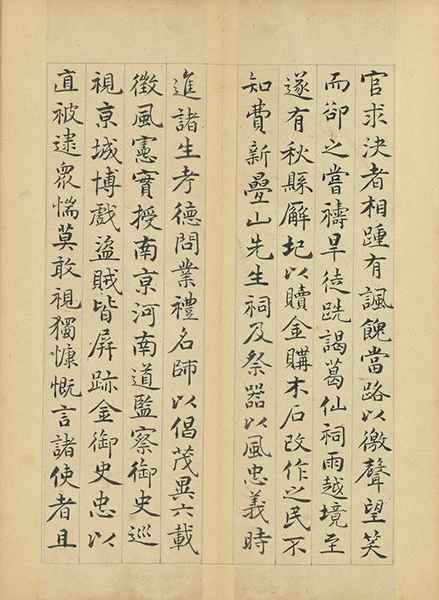 官求決者相踵有諷餽當路以徼聲望笑
而卻之嘗禱旱徒跣謁葛仙祠雨越境至
遂有秋縣廨圮以贖金購木石改作之民不
知費新疊山先生祠及祭器以風忠義時
進諸生考德問業禮名師以倡茂異六載
徵風憲實授南京河南道監察御史巡
視京城博戲盜賊皆屏跡金御史忠以
直被逮眾惴莫敢視獨慷慨言諸使者且